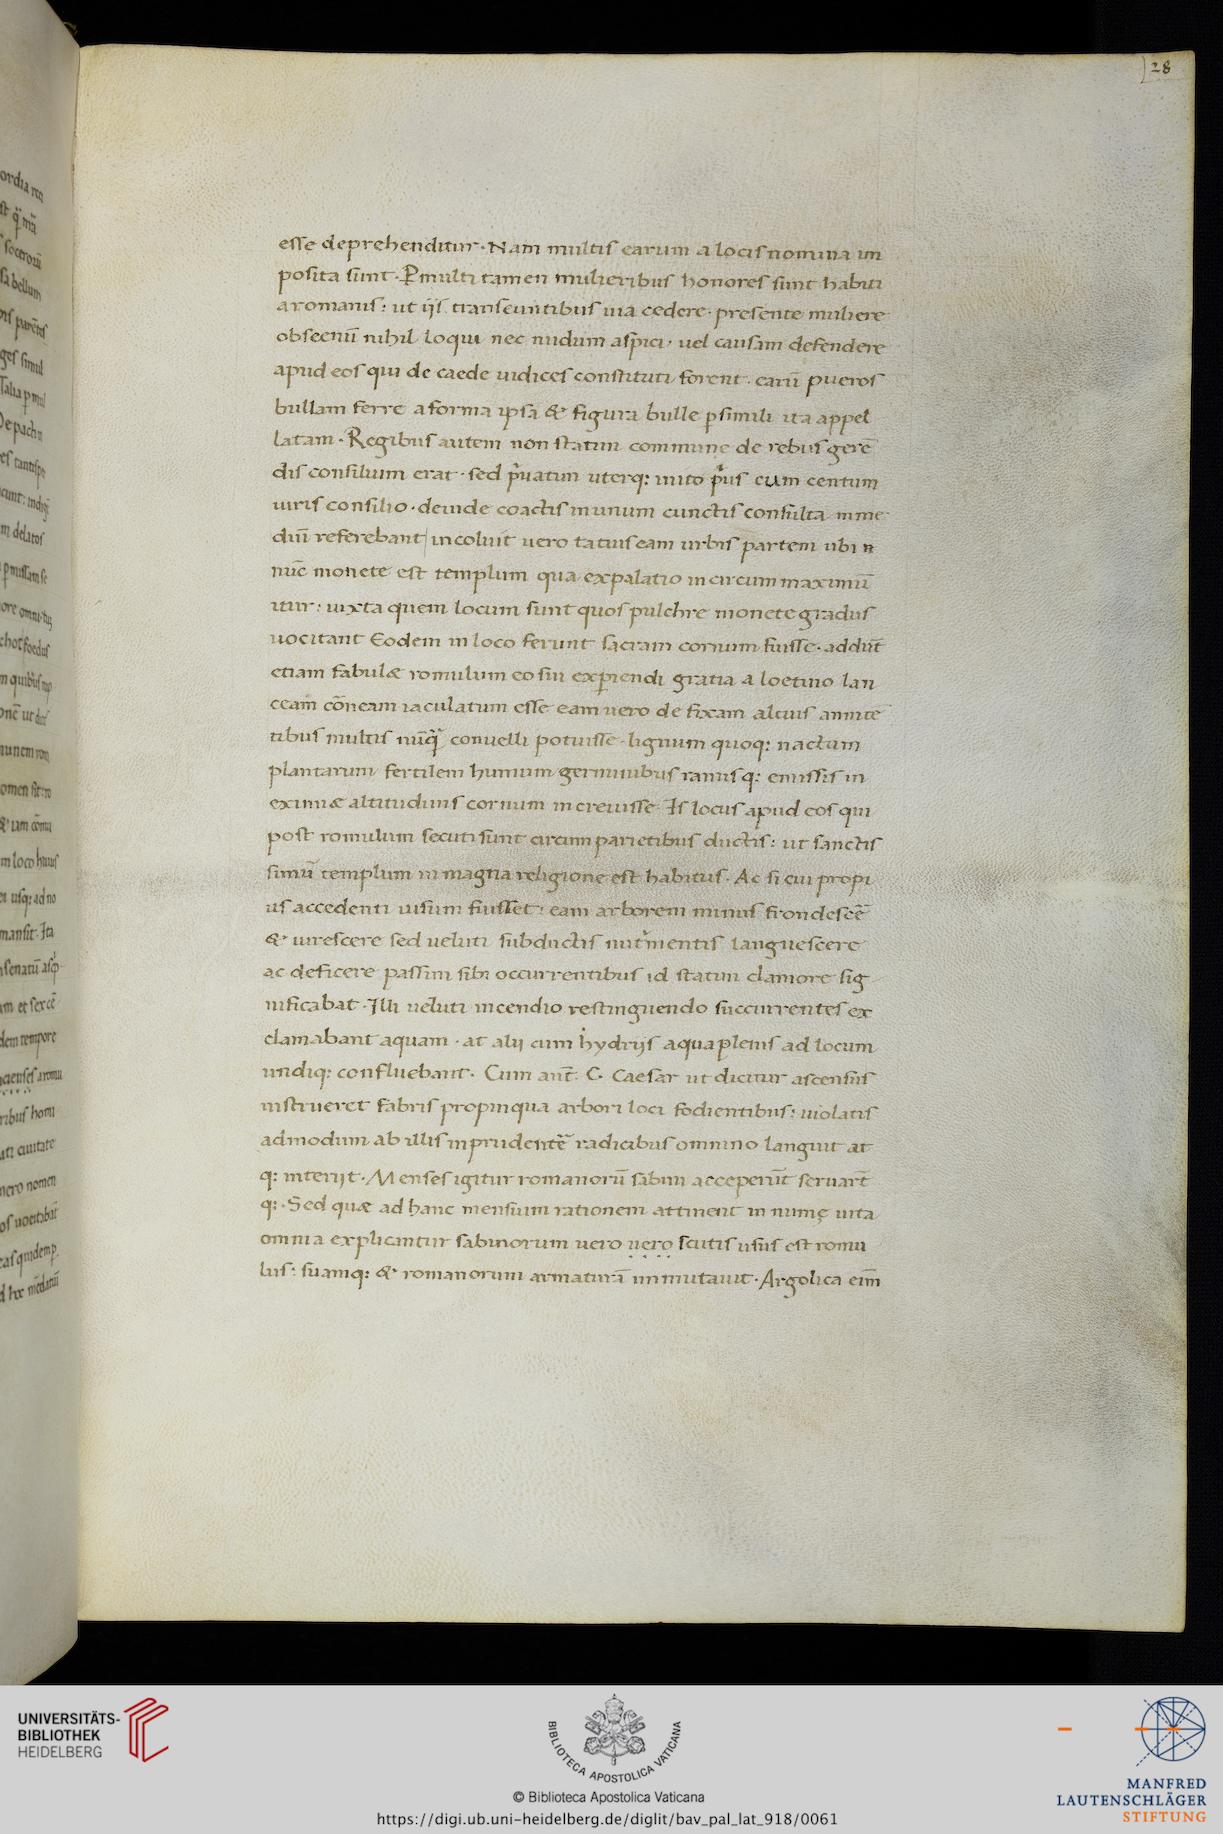 28
esse deprehenditur · Nam multis earum a locis nomina im
posita sunt · P̱multi tamen mulieribus honores sunt habiti
a romanis : ut ijs transeuntibus uia cedere · presente muliere
obscenū nihil loqui nec nudum aspici · uel causam defendere
apud eos qui de caede iudices constituti forent · earū pueros
bullam ferre a forma ipsa & figura bulle p̱simili ita appel
latam · Regibus autem non statim commune de rebus gerē
dis consilium erat · sed pͥuatim uterq; inito pͥus cum centum
uiris consilio · deinde coactis in unum cunctis consulta in me
diū referebant incoluit uero tatius eam urbis partem ubi n
nūc monete est templum qua ex palatio in circum maximū
itur : iuxta quem locum sunt quos pulchre monete gradus
uocitant Eodem in loco ferunt sacram cornum fuisse · addūt
etiam fabulæ romulum eo sui exp̱iendi gratia a loetino lan
ceam cōneam iaculatum esse eam uero defixam altius annitē
tibus multis nūqͣ conuelli potuisse · lignum quoq; nactum
plantarum fertilem humum germinibus ramisq; emissis in
eximiæ altitudinis cornum increuisse · Is locus apud eos qui
post romulum secuti sunt circum parietibus ductis : ut sanctis
simū templum in magna religione est habitus · Ac si cui propi
us accedenti uisum fuisset : eam arborem minus frondescē
& uirescere sed ueluti subductis nutͥmentis languescere
ac deficere passim sibi occurrentibus id statim clamore sig
nificabat · Illi ueluti incendio restinguendo succurrentes ex
clamabant aquam · at alij cum hydrijs aqua plenis ad locum
undiq; confluebant · Cum aut̄ · C · Caesar ut dicitur ascensus
instrueret fabris propinqua arbori loci fodientibus : uiolatis
admodum ab illis inprudentē radicibus omnino languit at
q; interijt · Menses igitur romanorū sabini acceperūt seruarūt
q; · Sed quæ ad hanc mensium rationem attinent in numę uita
omnia explicantur sabinorum uero uero scutis usus est romu
lus : suamq; & romanorum armaturā immutauit · Argolica eīm
UNIVERSITÄTS-
BIBLIOTHEK
HEIDELBERG
BIBLIOTECA APOSTOLICA VATICANA
© Biblioteca Apostolica Vaticana
https://digi.ub.uni-heidelberg.de/diglit/bav_pal_lat_918/0061
MANFRED
LAUTENSCHLÄGER
STIFTUNG